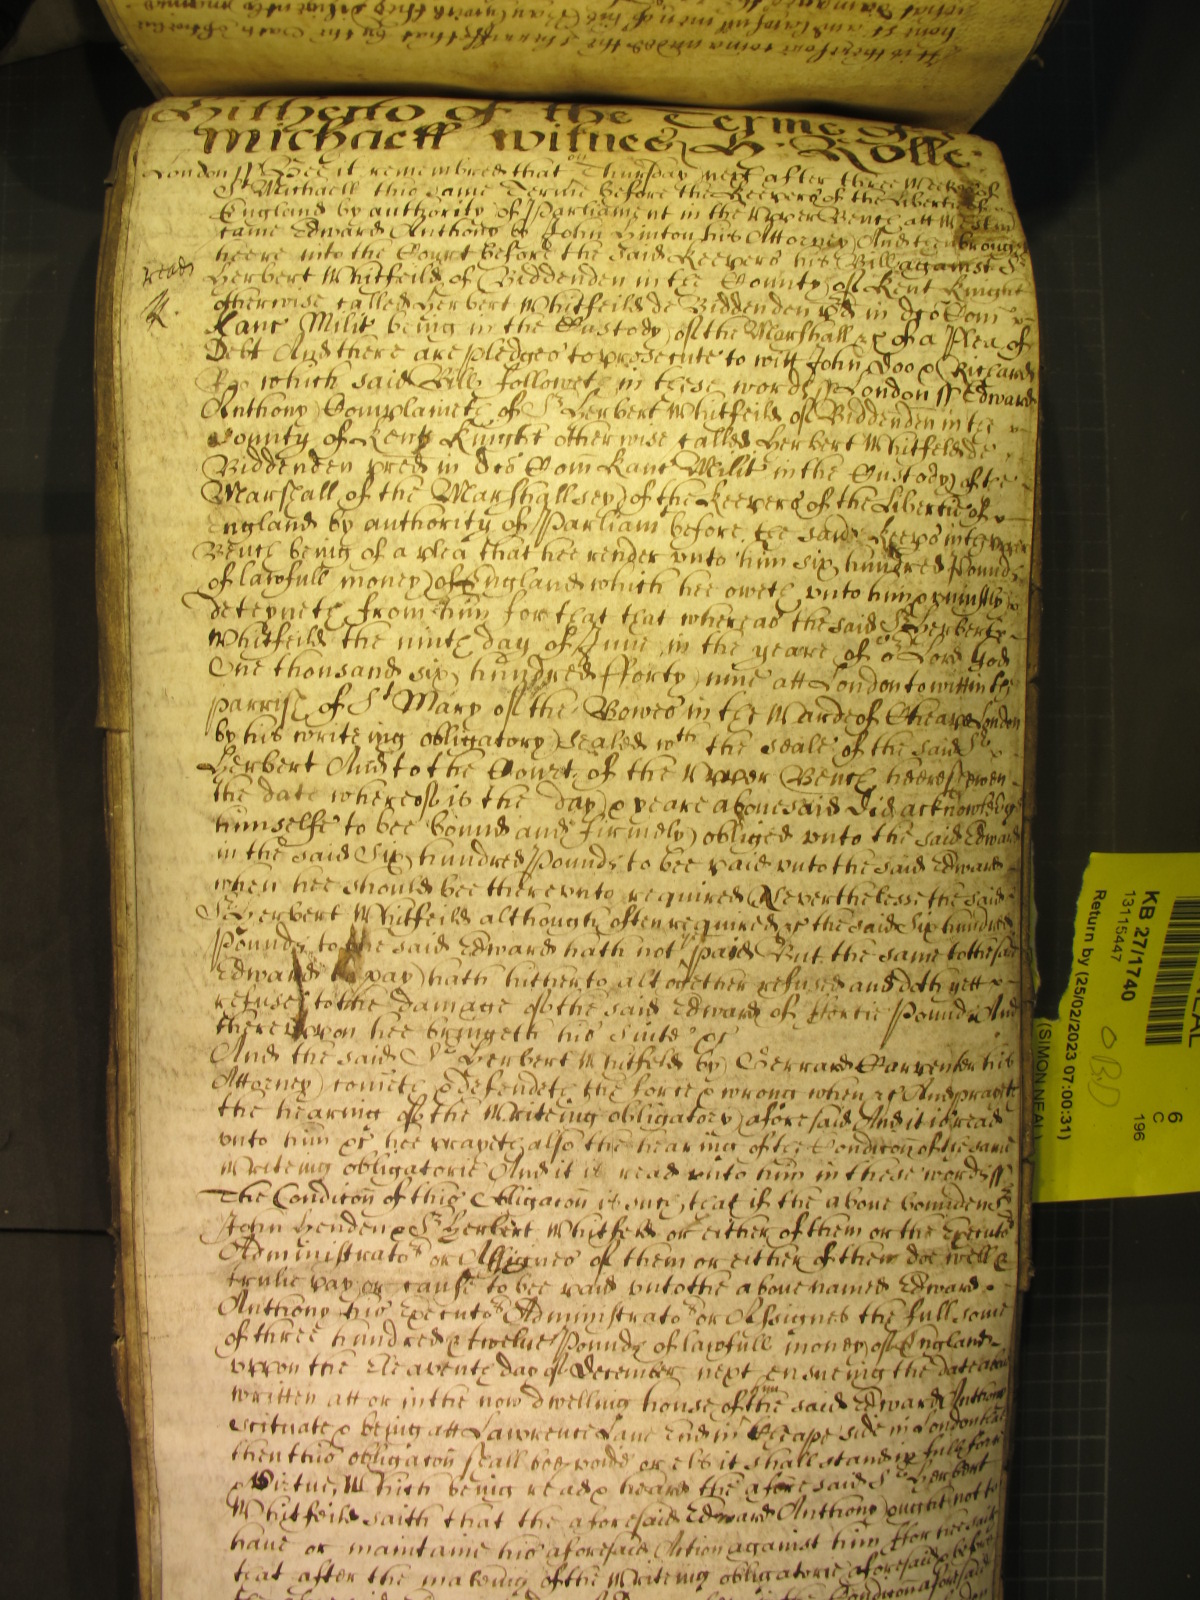 Hitherto of the Terme of St
Michaell witnes H: Rolle:
London ss Bee it remembred that on Thursday next after three Weekes of
St Michaell this same Terme before the Keepers of the Libertie of
England by authority of Parliament in the Upper Bench att Westm
came Edward Anthony by John Hinton his Attorney And then brought
heere into the Court before the said Keepers his Bill against Sr
Herbert Whitfeild of Biddenden in the County of Kent Knight
otherwise called Herbert Whitfeild de Biddenden pred in dco Com
Kanc Milit being in the Custody of the Marshall &c of a Plea of
Debt And there are pledges to prosecute to witt John Doo & Richard
Roo which said Bill followeth in these words ss London ss Edward
Anthony Complaineth of Sr Herbert Whitfeild of Biddenden in the
County of Kent Knight otherwise called Herbert Whitfeild de
Biddenden pred in dco Com Kanc Milit in the Custody of the
Marshall of the Marshallsey of the Keepers of the Libertie of
England by authority of Parliamt before the said Keeps in the upper
Bench being of a plea that hee render unto him six hundred Pounds
of lawfull money of England which hee oweth unto him & uniustly
deteyneth from him for that that whereas the said Sr Herbert
Whitfeild the ninth day of June in the yeare of or Lord God
One thousand six hundred fforty nine att London to witt in the
parrish of St Mary of the Bowes in the Warde of Cheape London
by his writeing obligatory sealed wth the seale of the said Sr
Herbert And to the Court of the Upper Bench heere shewen
the date whereof is the day & yeare abovesaid Did acknowledge
himselfe to bee bound and firmely obliged unto the said Edward
in the said Six hundred Pounds to bee paid unto the said Edward
when hee should bee thereunto required Neverthelesse the said
Sr Herbert Whitfeild although often required &c the said Six hundred
Pounds to the said Edward hath not paid But the same to the said
Edward to pay hath hitherto altogether refused and doth yett
refuse to the damage of the said Edward of fortie Pounds And
thereupon hee bringeth his suite &c
And the said Sr Herbert Whitfeild by Gerrard Carpenter his
Attorney cometh & defendeth the force & wrong when &c And prayeth
the hearing of the Writeing obligatory aforesaid And it is read
unto him &c hee prayeth also the hearing of the Condicon of the same
Writeing obligatorie And it is read unto him in these words ss
The Condicon of this Obligacon is such that if the above bounden
John Henden & Sr Herbert Whitfeild or either of them or the Executors
Administrators or Assignes of them or either of them doe well &
trulie pay or cause to bee paid unto the above named Edward
Anthony his Executors Administrators or Assignes the full some
of three hundred & twelve Pounds of lawfull money of England
uppon the Eleaventh day of December next ensueing the date above
written att or in the now dwelling house of him the said Edward Anthony
scituate & being att Lawrence Lane End in Cheape side in London That
then this obligacon shall bee voide or els it shall stand in full force
& Virtue, Which being read & heard the aforesaid Sr Herbert
Whitfeild saith that the aforesaid Edward Anthony ought not to
have or maintaine his aforesaid Action against him for hee saith
that after the making of the Writeing obligatorie aforesaid & before
KB 27/1740
13115447
Return by (25/02/2023 07:00:31)
6
C
196
(SIMON NEAL)